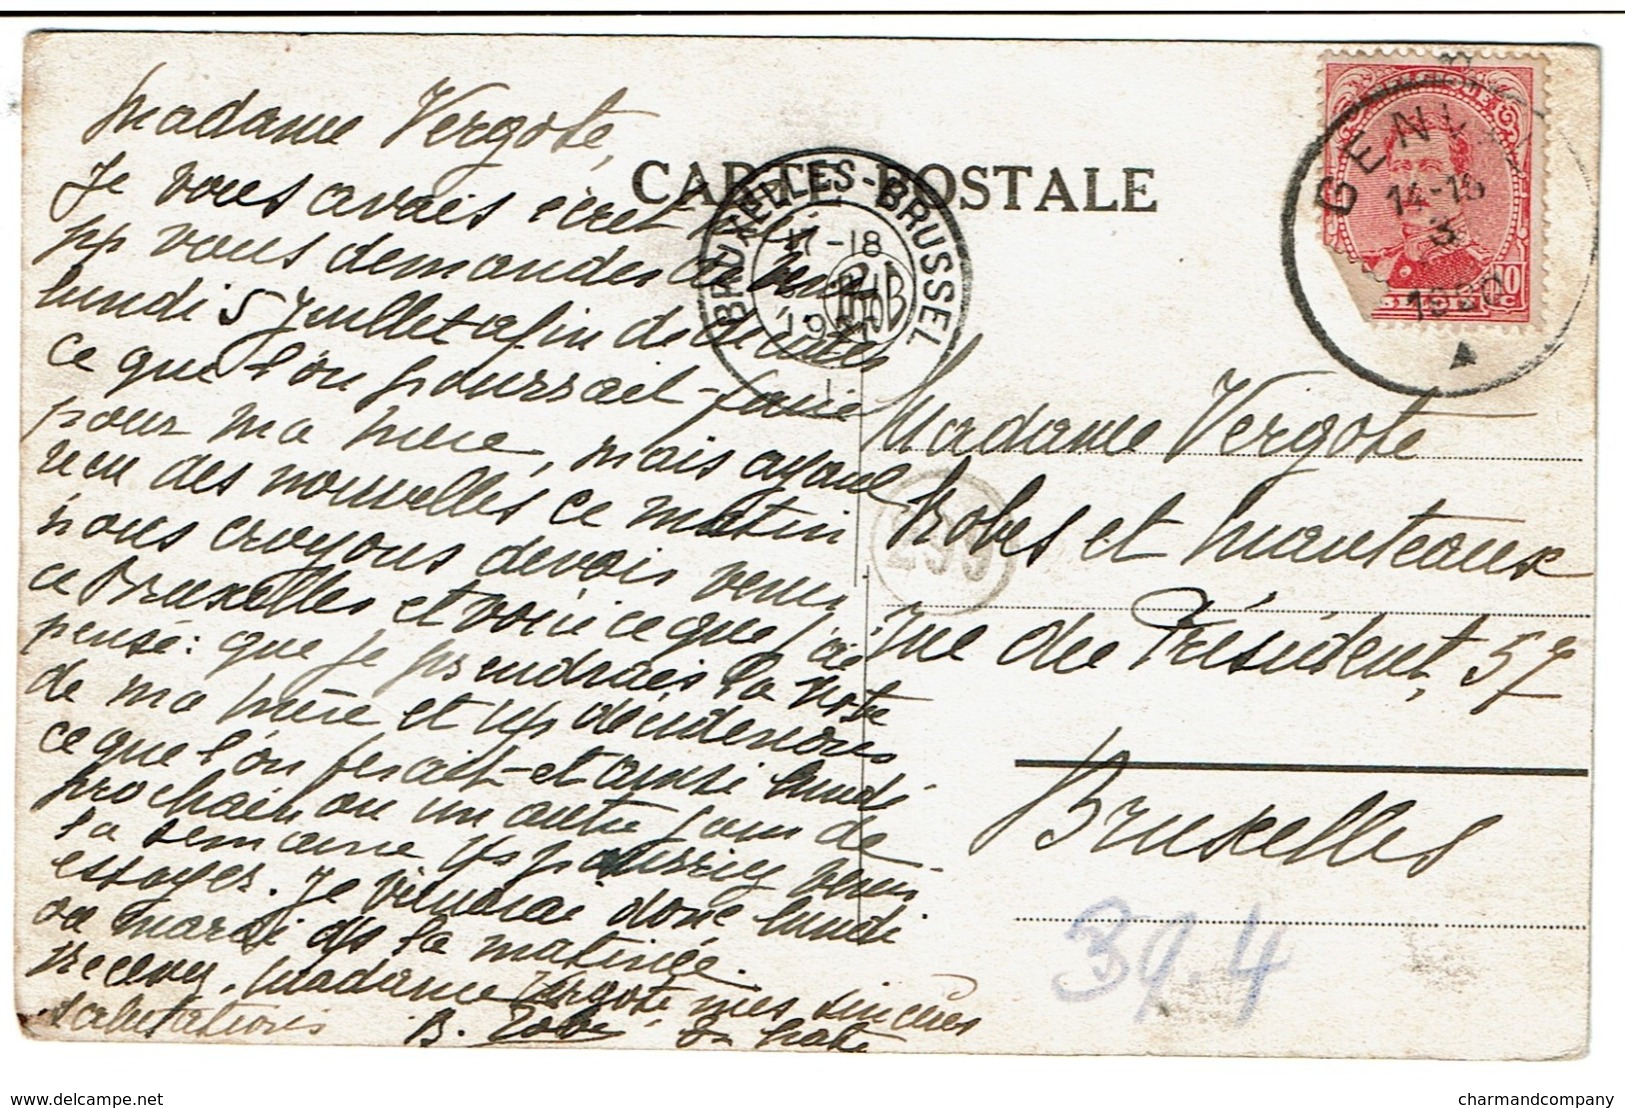 CARTE POSTALE
Madame Vergote,
Je vous avais écrit
pr vous demander de venir
lundi 5 Juillet afin de décider
ce que l'on pourrait faire
pour ma mère, mais ayant
reçu des nouvelles ce matin
nous croyons devoir venir
à Bruxelles et voici ce que j'ai
pensé: que je prendrais la robe
de ma mère et vs déciderions
ce que l'on ferait et aussi lundi
prochain ou un autre jour de
la semaine vs pourriez venir
essayer. Je viendrai donc lundi
ou mardi ds la matinée.
Recevez, Madame Vergote mes sincères
salutations
B.
en hâte
BRUXELLES-BRUSSEL
17-18
1
GENT
14-15
3
1920
BELGIE
10
C
299
Madame Vergote
Robes et Manteaux
rue du Président, 57
Bruxelles
39.4
www.delcampe.net
charmandcompany